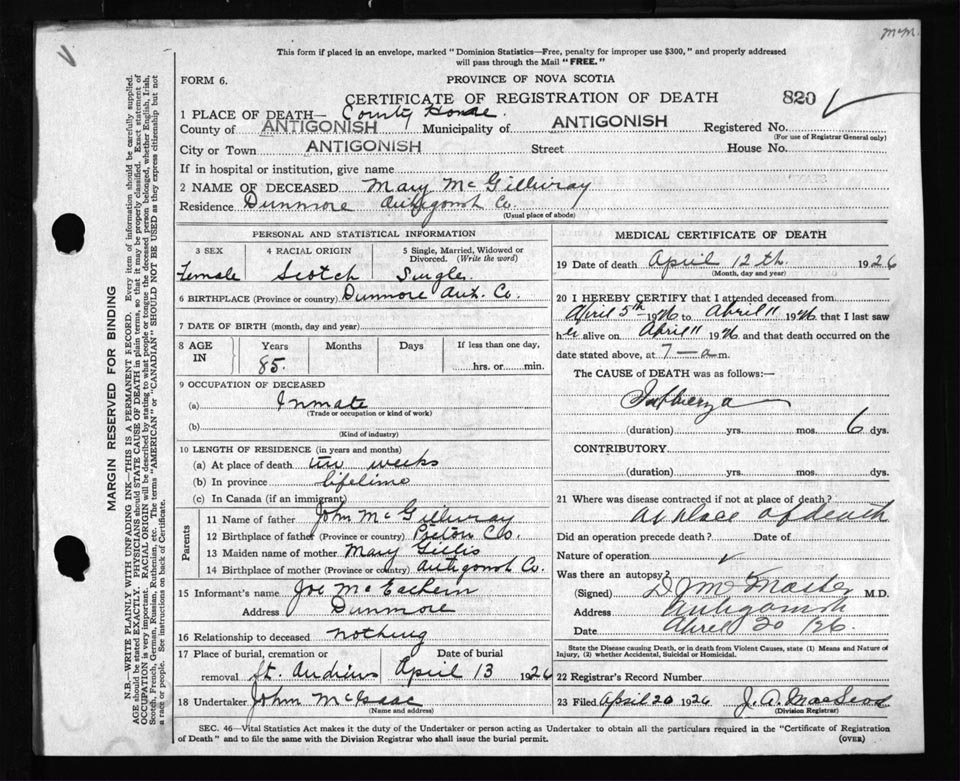 McM.
This form if placed in an envelope, marked "Dominion Statistics—Free, penalty for improper use $300," and properly addressed
will pass through the Mail "FREE."
FORM 6.
PROVINCE OF NOVA SCOTIA
CERTIFICATE OF REGISTRATION OF DEATH
820
1 PLACE OF DEATH— County Home.
County of ANTIGONISH Municipality of ANTIGONISH Registered No.
(For use of Registrar General only)
City or Town ANTIGONISH Street House No.
If in hospital or institution, give name
2 NAME OF DECEASED Mary McGillivray
Residence Dunmore Antigonish Co.
(Usual place of abode)
PERSONAL AND STATISTICAL INFORMATION
3 SEX 4 RACIAL ORIGIN 5 Single, Married, Widowed or
Divorced. (Write the word)
Female Scotch Single.
6 BIRTHPLACE (Province or country) Dunmore Ant. Co.
7 DATE OF BIRTH (month, day and year)
8 AGE IN Years Months Days If less than one day,
85. hrs. or min.
9 OCCUPATION OF DECEASED
(a) Inmate
(Trade or occupation or kind of work)
(b)
(Kind of industry)
10 LENGTH OF RESIDENCE (in years and months)
(a) At place of death weeks
(b) In province lifetime
(c) In Canada (if an immigrant)
Parents
11 Name of father John McGillivray
12 Birthplace of father (Province or country) Pictou Co.
13 Maiden name of mother Mary Gillis
14 Birthplace of mother (Province or country) Antigonish Co.
15 Informant's name Joe McEachern
Address Dunmore
16 Relationship to deceased nothing
17 Place of burial, cremation or Date of burial
removal St. Andrews April 13 1926
18 Undertaker John McIsaac
(Name and address)
MEDICAL CERTIFICATE OF DEATH
19 Date of death April 12th. 1926
(Month, day and year)
20 I HEREBY CERTIFY that I attended deceased from
April 5th 1926 to April 11 1926 that I last saw
h alive on April 11 1926 and that death occurred on the
date stated above, at 7—a m.
The CAUSE of DEATH was as follows:—
Influenza
(duration) yrs. mos. 6 dys.
CONTRIBUTORY
(duration) yrs. mos. dys.
21 Where was disease contracted if not at place of death?
At place of death
Did an operation precede death? Date of
Nature of operation
Was there an autopsy?
(Signed) M.D.
Address Antigonish
Date April 20 /26.
State the Disease causing Death, or in death from Violent Causes, state (1) Means and Nature of
Injury, (2) whether Accidental, Suicidal or Homicidal.
22 Registrar's Record Number
23 Filed April 20 1926 J. A. MacLeod
(Division Registrar)
SEC. 46—Vital Statistics Act makes it the duty of the Undertaker or person acting as Undertaker to obtain all the particulars required in the "Certificate of Registration
of Death" and to file the same with the Division Registrar who shall issue the burial permit.
(OVER)
MARGIN RESERVED FOR BINDING
N.B.—WRITE PLAINLY WITH UNFADING INK—THIS IS A PERMANENT RECORD. Every item of information should be carefully supplied.
AGE should be stated EXACTLY. PHYSICIANS should STATE CAUSE OF DEATH in plain terms, so that it may be properly classified. Exact statement of
OCCUPATION is very important. RACIAL ORIGIN will be described by stating to what people or tongue the deceased person belonged, whether English, Irish,
Scotch, French, German, Russian, Ruthenian, etc. The terms "AMERICAN" or "CANADIAN" SHOULD NOT BE USED as they express citizenship but not
a race or people. See instructions on back of Certificate.